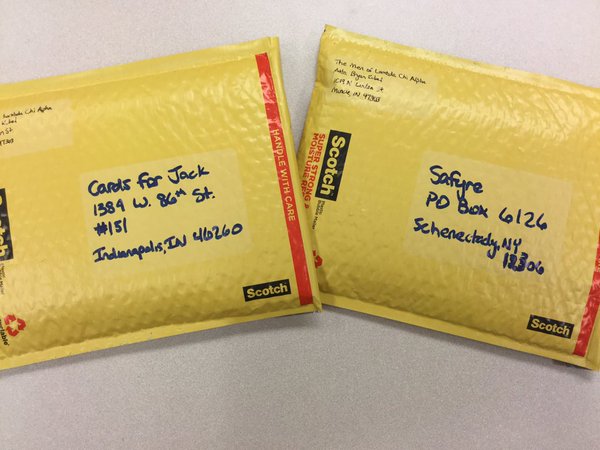 Lambda Chi Alpha
47303
Cards for Jack
1389 W. 86th St.
#151
Indianapolis, IN 46260
HANDLE WITH CARE
Scotch
The Men of Lambda Chi Alpha
N St
Muncie, IN 47303
Scotch
SUPER STRONG
MOISTURE
Safyre
PO Box 6126
Schenectady, NY
12306
Scotch